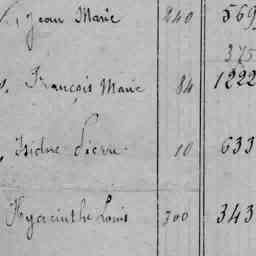 Jean Marie 240 569
375
François Marie 84 1222
Isidore Pierre 10 633
Hyacinthe Louis 300 343